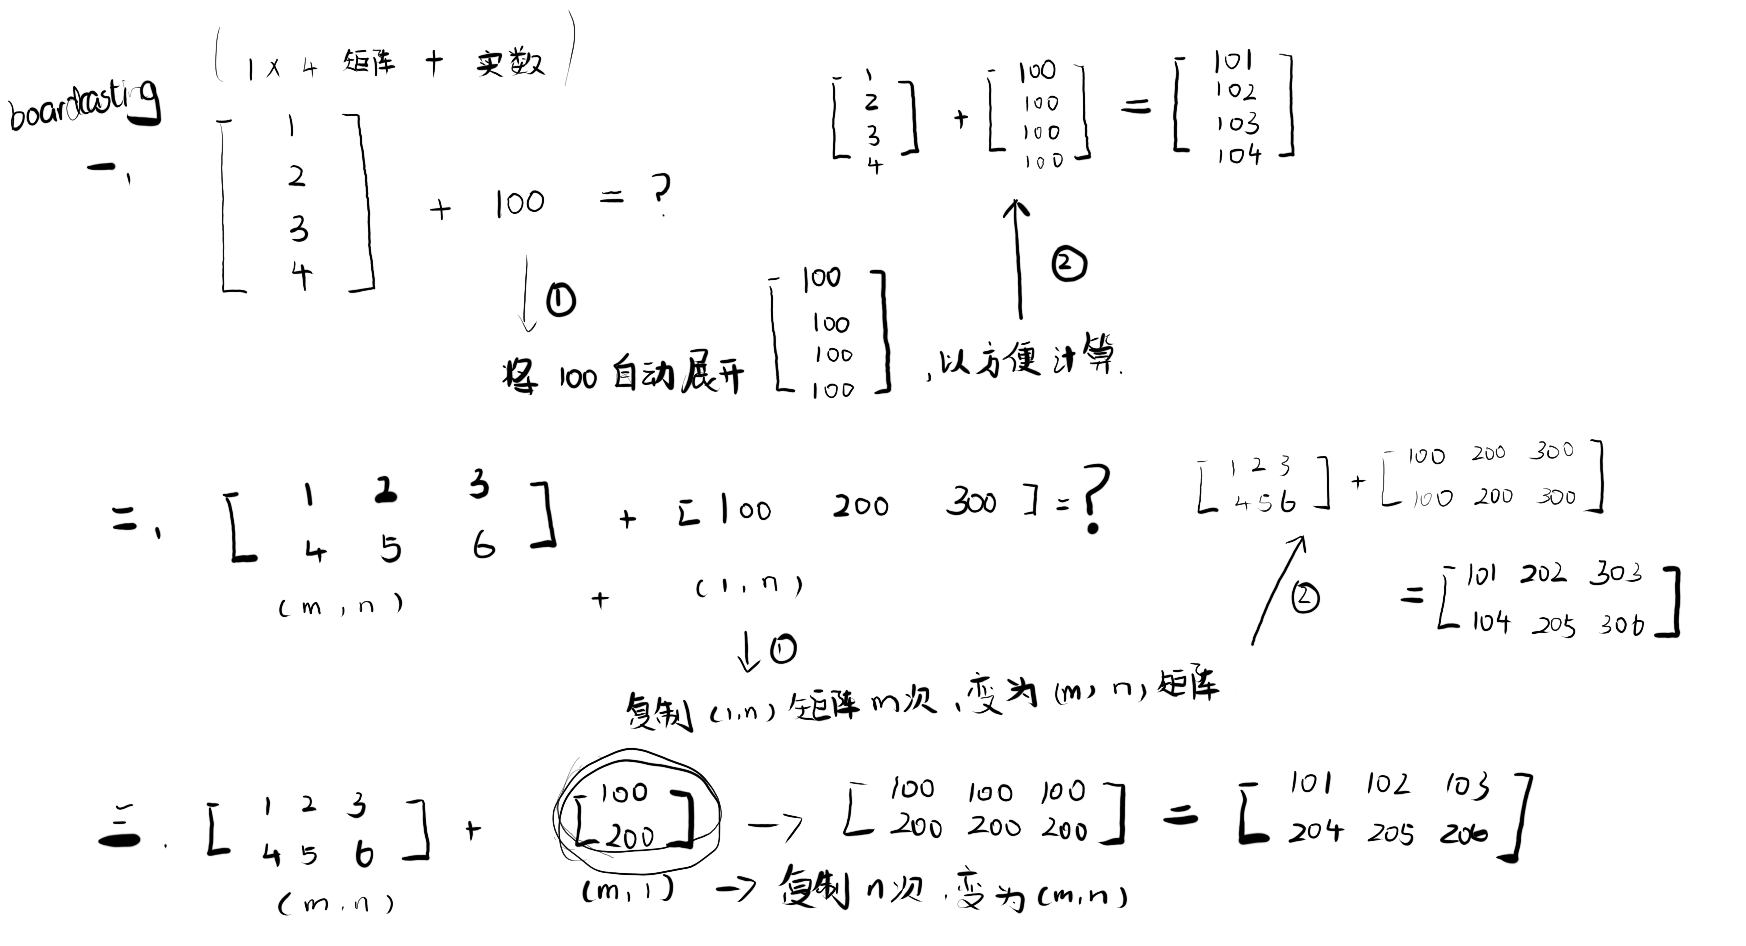 (1×4 矩阵 + 实数)
boardcasting
一、
[1
2
3
4] + 100 = ?
①
将 100 自动展开 [100
100
100
100], 以方便计算.
②
[1
2
3
4] + [100
100
100
100] = [101
102
103
104]
二、 [1 2 3
4 5 6] + [100 200 300] = ?
(m, n) + (1, n)
↓ ①
复制 (1,n) 矩阵 m次, 变为 (m, n) 矩阵
②
[1 2 3
4 5 6] + [100 200 300
100 200 300]
= [101 202 303
104 205 306]
三. [1 2 3
4 5 6] + [100
200] → [100 100 100
200 200 200] = [101 102 103
204 205 206]
(m, n) (m, 1) → 复制 n次, 变为 (m,n)